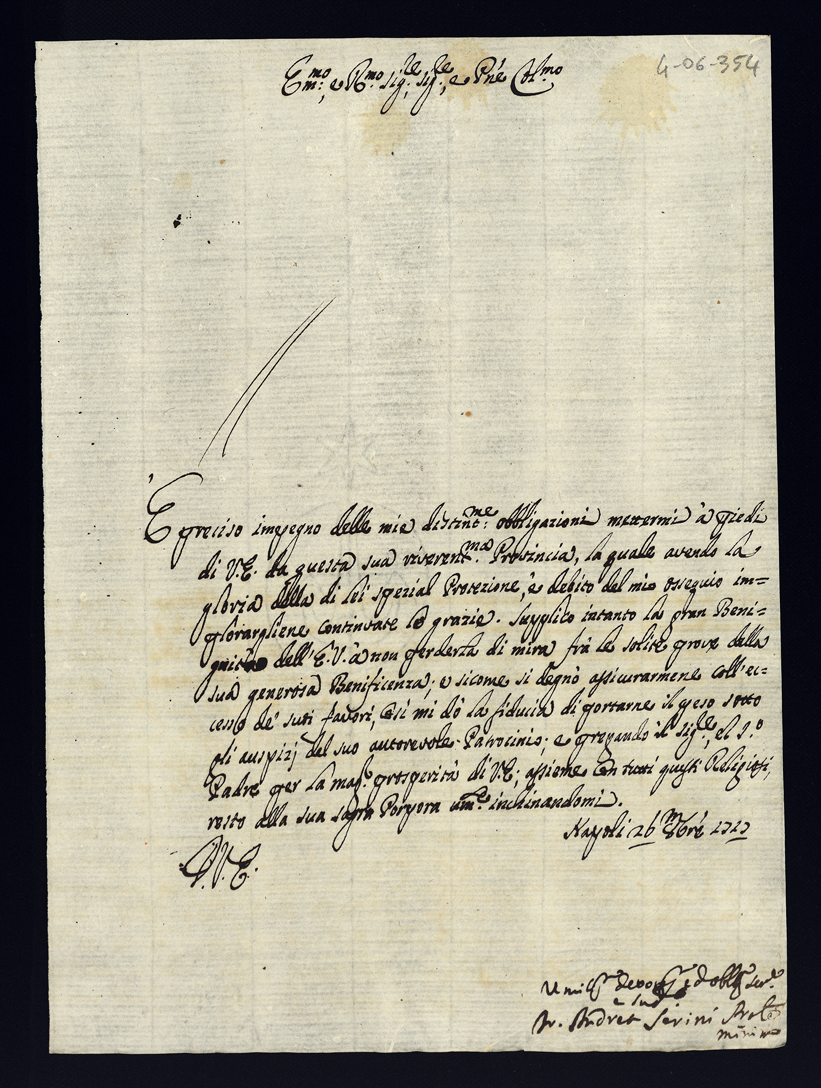 4-06-354
Em.mo, e R.mo Sig.re Sig.re, e Pñe Col.mo
È preciso impegno delle mie distint.me obbligazioni mettermi à piedi
di V.E. da questa sua riverent.ma Provincia, la quale avendo la
gloria della di lei spezial Protezione, è debito del mio ossequio im=
plorargliene continuate le grazie. Supplico intanto la gran Beni=
gnità dell'E.V. à non perderla di mira frà le solite prove della
sua generosa Beneficenza; e sicome si degnò assicurarmene coll'ec=
cesso de' suoi favori, così mi dò la fiducia di portarne il peso sotto
gli auspizj del suo autorevole Patrocinio; e pregando il Sig.re, e'l S.o
Padre per la mag.r prosperità di V.E; assieme con tutti questi Religiosi,
resto alla sua sagra Porpora um.te inchinandomi.
Napoli 26
D.V.E.
Umiliss.
e suo
Fr. Andrea Serini
minimo